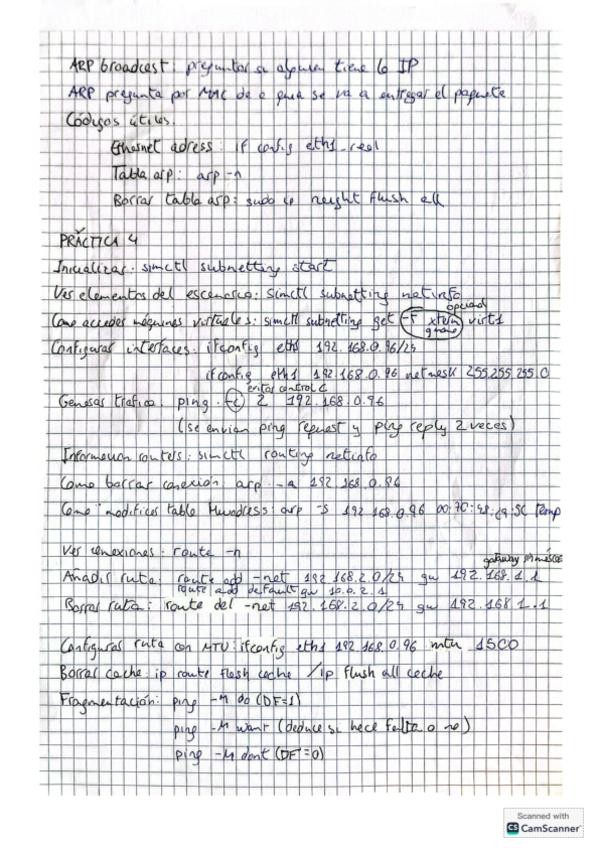 ARP broadcast: preguntar si alguien tiene la IP
ARP pregunta por MAC de a quien se va a entregar el paquete
Códigos útiles.
Ethernet adress: if config eth1 real
Tabla arp: arp -n
Borrar tabla arp: sudo ip neight flush all
PRÁCTICA 4
Inicializar: simctl subnetting start
Ver elementos del escenario: simctl subnetting netinfo
opcional
Como acceder máquinas virtuales: simctl subnetting get -F xterm virt1
gnome
Configurar interfaces: ifconfig eth1 192.168.0.96/24
ifconfig eth1 192.168.0.96 netmask 255.255.255.0
evitar control C
Generar trafico: ping -c 2 192.168.0.96
(se envian ping request y ping reply 2 veces)
Informacion routers: simctl routing netinfo
Como borrar conexión: arp -a 192.168.0.96
Como modificar table Hwadress: arp -s 192.168.0.96 temp
Ver conexiones: route -n
gateway
Añadir ruta: route add -net 192.168.2.0/24 gw 192.168.1.1
route add default gw 10.0.2.1
Borrar ruta: route del -net 192.168.2.0/24 gw 192.168.1.1
Configurar ruta con MTU: ifconfig eth1 192.168.0.96 mtu 1500
Borrar cache: ip route flesh cache / ip flush all cache
Fragmentación: ping -M do (DF=1)
ping -M want (deduce si hace falta o no)
ping -M dont (DF=0)
Scanned with
CS CamScanner